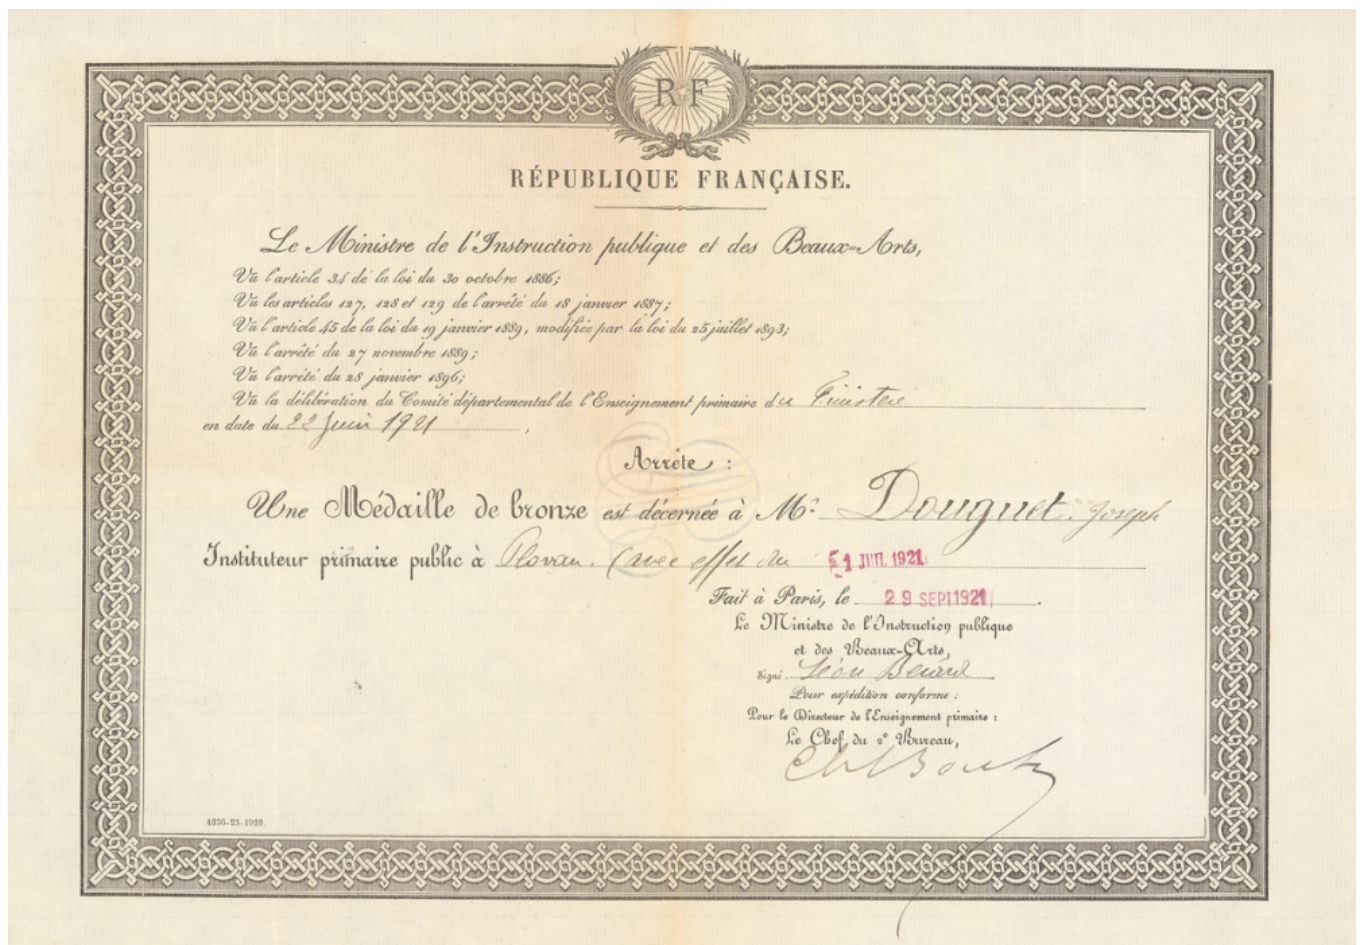 RF
RÉPUBLIQUE FRANÇAISE.
Le Ministre de l'Instruction publique et des Beaux-Arts,
Vu l'article 34 de la loi du 30 octobre 1886;
Vu les articles 127, 128 et 129 de l'arrêté du 18 janvier 1887;
Vu l'article 45 de la loi du 19 janvier 1889, modifiée par la loi du 25 juillet 1893;
Vu l'arrêté du 27 novembre 1889;
Vu l'arrêté du 28 janvier 1896;
Vu la délibération du Comité départemental de l'Enseignement primaire du Finistère
en date du 22 Juin 1921,
Arrête :
Une Médaille de bronze est décernée à Mr Douguet. Joseph
Instituteur primaire public à Plovan. (avec effet du 1 JUIL 1921
Fait à Paris, le 29 SEPT 1921.
Le Ministre de l'Instruction publique
et des Beaux-Arts,
Signé. Léon Bérard
Pour expédition conforme :
Pour le Directeur de l'Enseignement primaire :
Le Chef du 2e Bureau,
4036-25-1920.